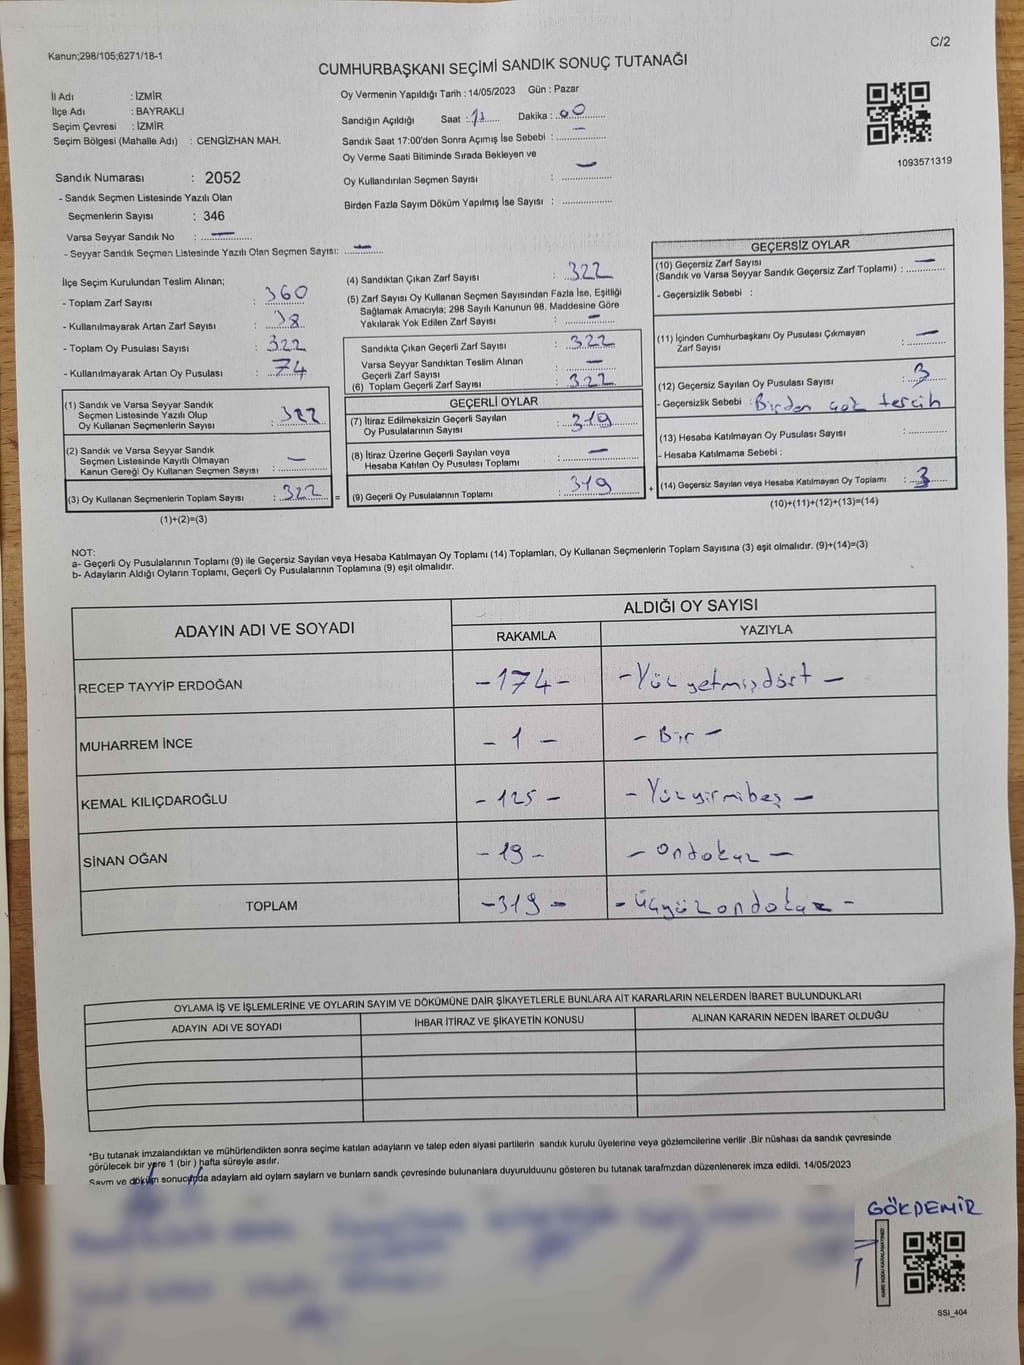 Kanun;298/105;6271/18-1
C/2
CUMHURBAŞKANI SEÇİMİ SANDIK SONUÇ TUTANAĞI
İl Adı : İZMİR
İlçe Adı : BAYRAKLI
Seçim Çevresi : İZMİR
Seçim Bölgesi (Mahalle Adı) : CENGİZHAN MAH.
Sandık Numarası : 2052
- Sandık Seçmen Listesinde Yazılı Olan
Seçmenlerin Sayısı : 346
Varsa Seyyar Sandık No : —
- Seyyar Sandık Seçmen Listesinde Yazılı Olan Seçmen Sayısı: —
Oy Vermenin Yapıldığı Tarih : 14/05/2023 Gün : Pazar
Sandığın Açıldığı Saat : Dakika : 00
Sandık Saat 17:00'den Sonra Açımış İse Sebebi : —
Oy Verme Saati Bitiminde Sırada Bekleyen ve
Oy Kullandırılan Seçmen Sayısı : —
Birden Fazla Sayım Döküm Yapılmış İse Sayısı :
1093571319
İlçe Seçim Kurulundan Teslim Alınan;
- Toplam Zarf Sayısı : 360
- Kullanılmayarak Artan Zarf Sayısı : 38
- Toplam Oy Pusulası Sayısı : 322
- Kullanılmayarak Artan Oy Pusulası : 74
(1) Sandık ve Varsa Seyyar Sandık
Seçmen Listesinde Yazılı Olup
Oy Kullanan Seçmenlerin Sayısı : 322
(2) Sandık ve Varsa Seyyar Sandık
Seçmen Listesinde Kayıtlı Olmayan
Kanun Gereği Oy Kullanan Seçmen Sayısı : —
(3) Oy Kullanan Seçmenlerin Toplam Sayısı : 322 =
(1)+(2)=(3)
(4) Sandıktan Çıkan Zarf Sayısı : 322
(5) Zarf Sayısı Oy Kullanan Seçmen Sayısından Fazla İse, Eşitliği
Sağlamak Amacıyla; 298 Sayılı Kanunun 98. Maddesine Göre
Yakılarak Yok Edilen Zarf Sayısı : —
Sandıkta Çıkan Geçerli Zarf Sayısı : 322
Varsa Seyyar Sandıktan Teslim Alınan
Geçerli Zarf Sayısı : —
(6) Toplam Geçerli Zarf Sayısı : 322
GEÇERLİ OYLAR
(7) İtiraz Edilmeksizin Geçerli Sayılan
Oy Pusulalarının Sayısı : 319
(8) İtiraz Üzerine Geçerli Sayılan veya
Hesaba Katılan Oy Pusulası Toplamı : —
(9) Geçerli Oy Pusulalarının Toplamı : 319 +
GEÇERSİZ OYLAR
(10) Geçersiz Zarf Sayısı
(Sandık ve Varsa Seyyar Sandık Geçersiz Zarf Toplamı) : —
- Geçersizlik Sebebi :
(11) İçinden Cumhurbaşkanı Oy Pusulası Çıkmayan
Zarf Sayısı : —
(12) Geçersiz Sayılan Oy Pusulası Sayısı : 3
- Geçersizlik Sebebi : Birden çok tercih
(13) Hesaba Katılmayan Oy Pusulası Sayısı :
- Hesaba Katılmama Sebebi :
(14) Geçersiz Sayılan veya Hesaba Katılmayan Oy Toplamı : 3
(10)+(11)+(12)+(13)=(14)
NOT:
a- Geçerli Oy Pusulalarının Toplamı (9) ile Geçersiz Sayılan veya Hesaba Katılmayan Oy Toplamı (14) Toplamları, Oy Kullanan Seçmenlerin Toplam Sayısına (3) eşit olmalıdır. (9)+(14)=(3)
b- Adayların Aldığı Oyların Toplamı, Geçerli Oy Pusulalarının Toplamına (9) eşit olmalıdır.
ADAYIN ADI VE SOYADI
ALDIĞI OY SAYISI
RAKAMLA YAZIYLA
RECEP TAYYİP ERDOĞAN -174- -Yüz yetmişdört-
MUHARREM İNCE -1- -Bir-
KEMAL KILIÇDAROĞLU -125- -Yüzyirmibeş-
SİNAN OĞAN -19- -ondokuz-
TOPLAM -319- -üçyüzondokuz-
OYLAMA İŞ VE İŞLEMLERİNE VE OYLARIN SAYIM VE DÖKÜMÜNE DAİR ŞİKAYETLERLE BUNLARA AİT KARARLARIN NELERDEN İBARET BULUNDUKLARI
ADAYIN ADI VE SOYADI İHBAR İTİRAZ VE ŞİKAYETİN KONUSU ALINAN KARARIN NEDEN İBARET OLDUĞU
*Bu tutanak imzalandıktan ve mühürlendikten sonra seçime katılan adayların ve talep eden siyasi partilerin sandık kurulu üyelerine veya gözlemcilerine verilir .Bir nüshası da sandık çevresinde
görülecek bir yere 1 (bir ) hafta süreyle asılır.
Sayım ve döküm sonucunda adayların ald oyların saylarn ve bunlarn sandk çevresinde bulunanlara duyurulduunu gösteren bu tutanak tarafmzdan düzenlenerek imza edildi. 14/05/2023
GÖKDEMİR
KARE KODU KARALAMAYINIZ!
SSI_404